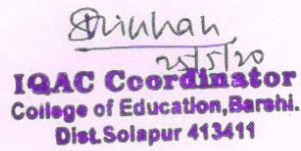 25/5/20
IQAC Coordinator
College of Education,Barshi.
Dist.Solapur 413411